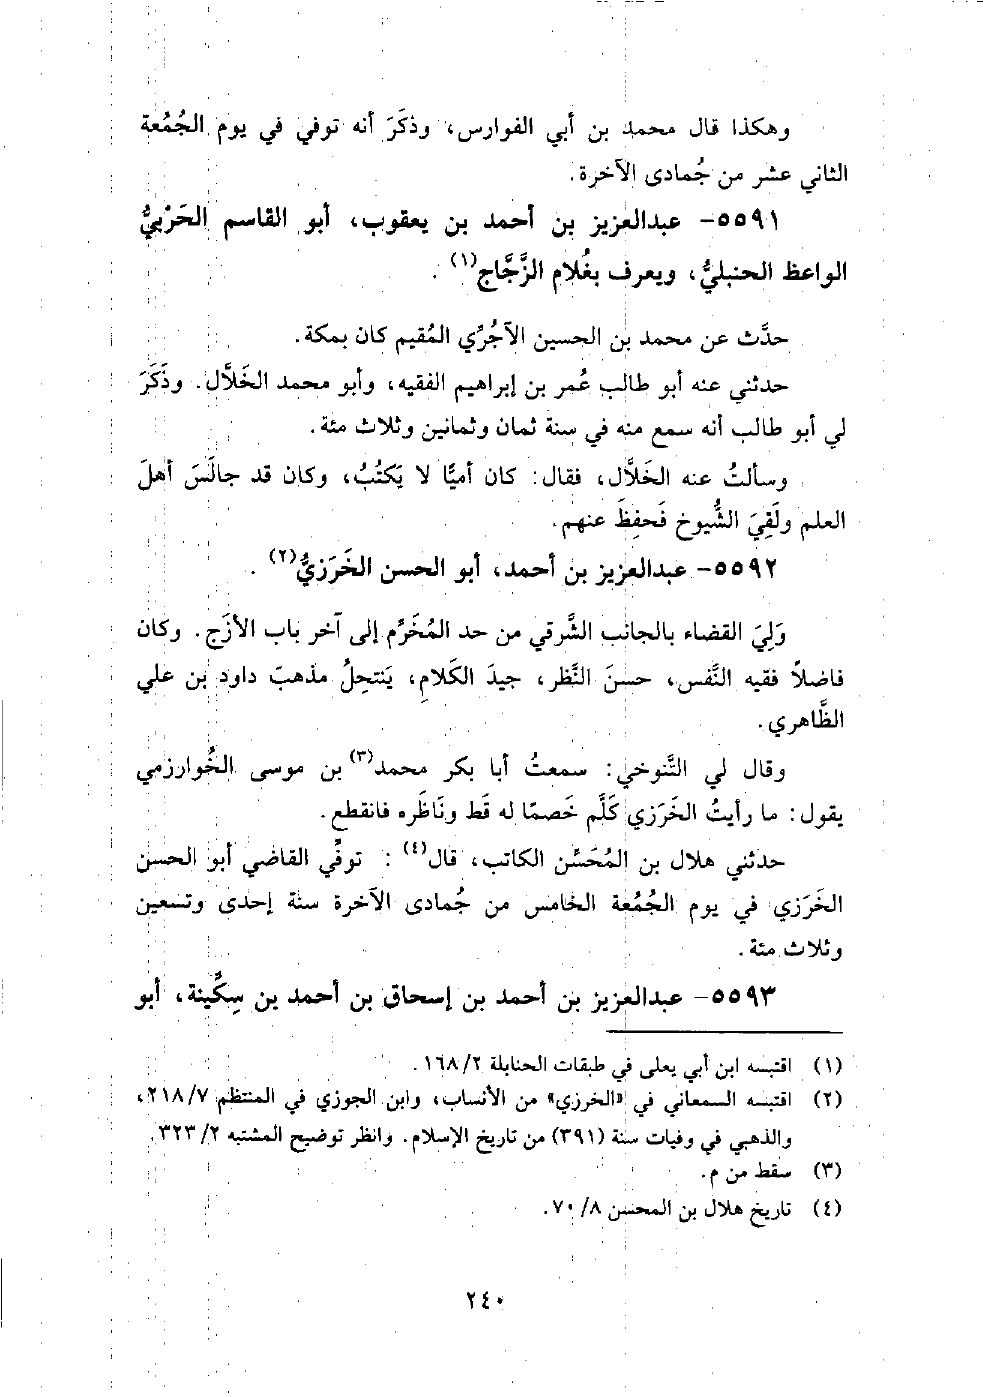 وهكذا قال محمد بن أبي الفوارس، وذكَرَ أنه توفي في يوم الجُمُعة
الثاني عشر من جُمادى الآخرة.
٥٥٩١- عبدالعزيز بن أحمد بن يعقوب، أبو القاسم الحَرْبيُّ
الواعظ الحنبليُّ، ويعرف بغُلام الزَّجَّاج(١).
حدَّث عن محمد بن الحسين الآجُرِّي المُقيم كان بمكة.
حدثني عنه أبو طالب عُمر بن إبراهيم الفقيه، وأبو محمد الخَلَّال. وذَكَرَ
لي أبو طالب أنه سمع منه في سنة ثمان وثمانين وثلاث مئة.
وسألتُ عنه الخَلَّال، فقال: كان أميًّا لا يَكتُبُ، وكان قد جالَسَ أهلَ
العلم ولَقِيَ الشُّيوخ فَحفِظَ عنهم.
٥٥٩٢- عبدالعزيز بن أحمد، أبو الحسن الخَرَزيُّ(٢).
وَلِيَ القضاء بالجانب الشَّرقي من حد المُخَرِّم إلى آخر باب الأزَج. وكان
فاضلاً فقيه النَّفس، حسنَ النَّظر، جيدَ الكَلام، يَنتحِلُ مذهبَ داود بن علي
الظَّاهري.
وقال لي التَّنوخي: سمعتُ أبا بكر محمد(٣) بن موسى الخُوارزمي
يقول: ما رأيتُ الخَرَزي كَلَّم خَصمًا له قَط ونَاظَره فانقطع.
حدثني هلال بن المُحَسِّن الكاتب، قال(٤): توفِّي القاضي أبو الحسن
الخَرَزي في يوم الجُمُعة الخامس من جُمادى الآخرة سنة إحدى وتسعين
وثلاث مئة.
٥٥٩٣- عبدالعزيز بن أحمد بن إسحاق بن أحمد بن سِكِّينة، أبو
(١) اقتبسه ابن أبي يعلى في طبقات الحنابلة ٢/ ١٦٨.
(٢) اقتبسه السمعاني في «الخرزي» من الأنساب، وابن الجوزي في المنتظم ٧/ ٢١٨،
والذهبي في وفيات سنة (٣٩١) من تاريخ الإسلام. وانظر توضيح المشتبه ٢/ ٣٢٣.
(٣) سقط من م.
(٤) تاريخ هلال بن المحسن ٨/ ٧٠.
٢٤٠